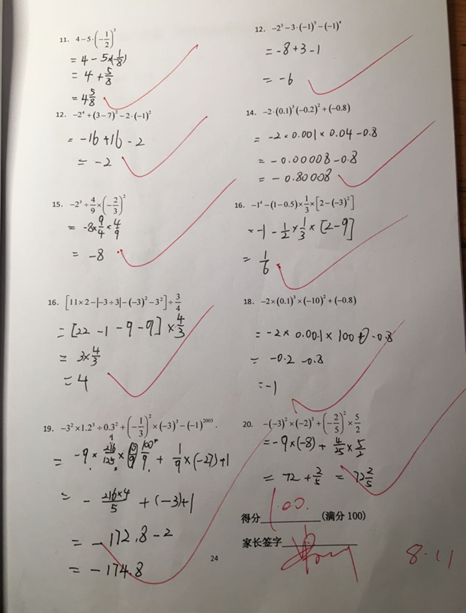 11. 4-5·(-1/2)³
= 4 - 5×(-1/8)
= 4 + 5/8
= 4 5/8
12. -2³-3·(-1)³-(-1)⁴
= -8+3-1
= -6
12. -2⁴+(3-7)²-2·(-1)²
= -16+16-2
= -2
14. -2·(0.1)³(-0.2)²+(-0.8)
= -2×0.001×0.04-0.8
= -0.00008-0.8
= -0.80008
15. -2³÷4/9×(-2/3)²
= -8×9/4×4/9
= -8
16. -1⁴-(1-0.5)×1/3×[2-(-3)²]
= -1-1/2×1/3×[2-9]
= 1/6
16. [11×2-|-3÷3|-(-3)²-3²]÷3/4
= [22-1-9-9]×4/3
= 3×4/3
= 4
18. -2×(0.1)³×(-10)²+(-0.8)
= -2×0.001×100-0.8
= -0.2-0.8
= -1
19. -3²×1.2³÷0.3²+(-1/3)²×(-3)³-(-1)²⁰⁰³.
= -9×216/125×100/9+1/9×(-27)+1
= -216×4/5+(-3)+1
= -172.8-2
= -174.8
20. -(-3)²×(-2)³+(-2/5)²×5/2
= -9×(-8)+4/25×5/2
= 72+2/5=72 2/5
得分 100. (满分100)
家长签字
24
8.11